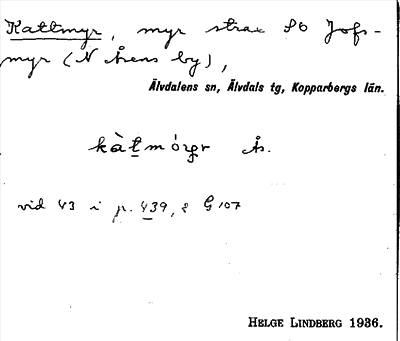 Kattmyr, myr strax SO Jofs-
myr (N Åsens by),
Älvdalens sn, Älvdals tg, Kopparbergs län.
kàtmórgr Ås.
vid 43 i p. 439, 8 G 107
HELGE LINDBERG 1936.